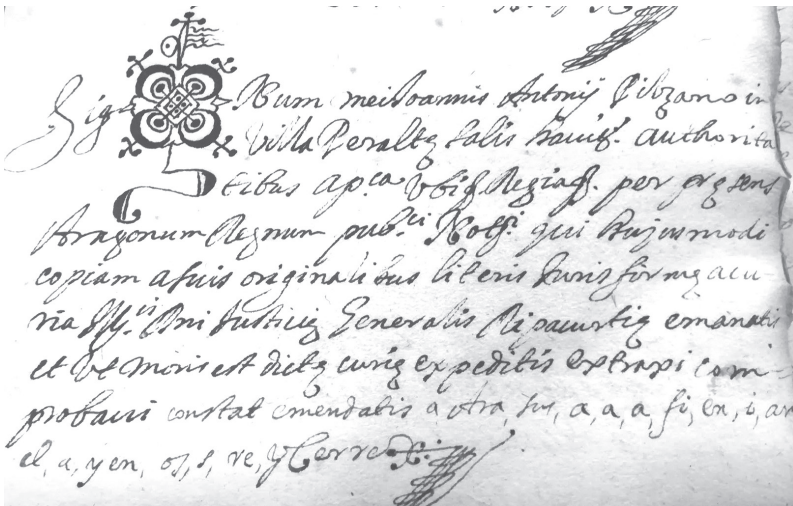 Sig Num mei Joannis Antonij Pilzano in
Villa Peraltę Salis havit. authorita
tibus ap.ca Vbiq Regiaq. per prę sens
Aragonum Regnum pub.ci Notr.i qui hujusmodi
copiam a suis originalibus literis Juris formę a cu-
ria Ill.is Dni Justicię Generalis Ripacurtię emanatis
et ut moris est dictę curię expeditis extraxi com-
probavi constat emendatis a, otra, sus, a, a, a, fi, en, i, ar
el, a, y en, os, s, re, y Cerre